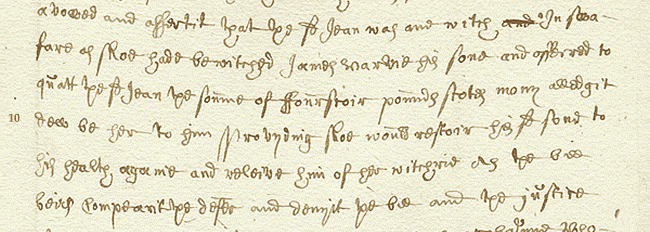 avowed and affertit that the sd Jean was ane witch and In swa
fare as shoe hade bewitched James Warrie his sone and offered to
quatt the sd Jean the soume of ffourstoir pounds scotch mony alledgit
10 dew be her to him provyding shoe would restoir his sd sone to
his health againe and releive him of her witchrie As the bill
beirs Compearit the defer and denyit the bill and the justice